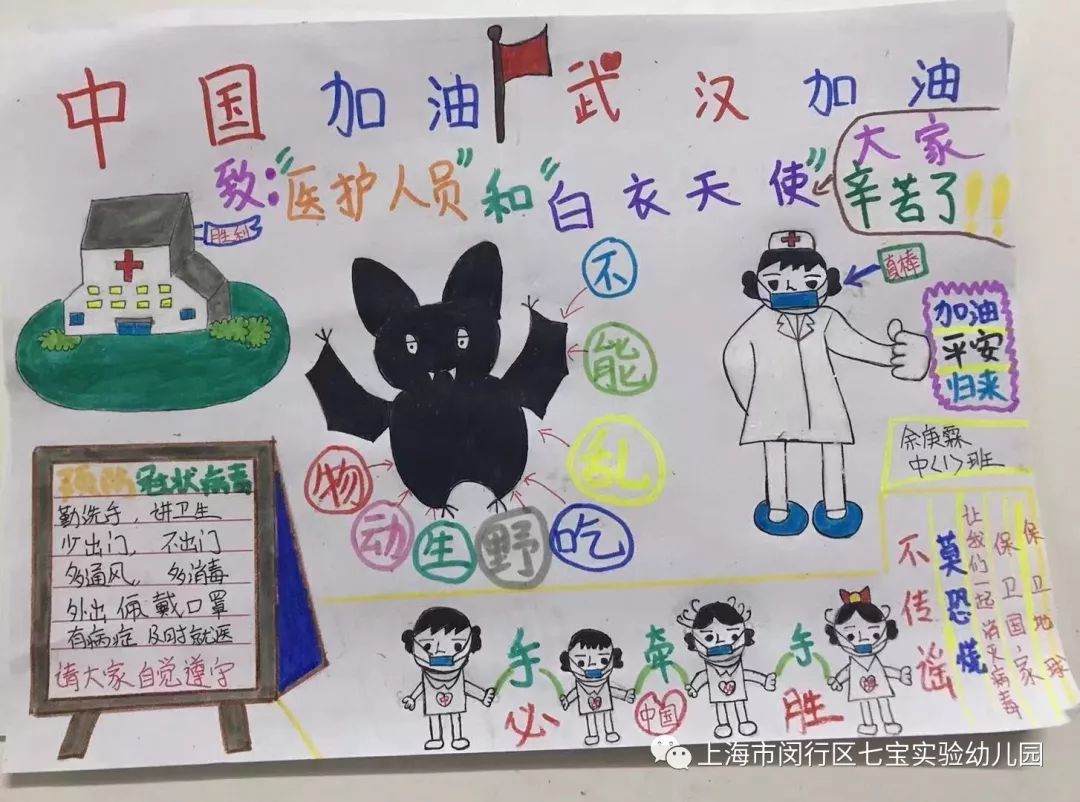 中国加油 武汉加油
致:"医护人员"和"白衣天使"
大家
辛苦了!!
胜利
真棒
加油
平安
归来
不
能
乱
吃
野
生
动
物
中<1>班
预防冠状病毒
勤洗手,讲卫生
少出门,不出门
多通风,多消毒
外出佩戴口罩
有病症及时就医
请大家自觉遵守
手牵手
必胜
中国
不传谣
莫恐慌
让我们一起消灭病毒
保卫国家
保卫地球
上海市闵行区七宝实验幼儿园